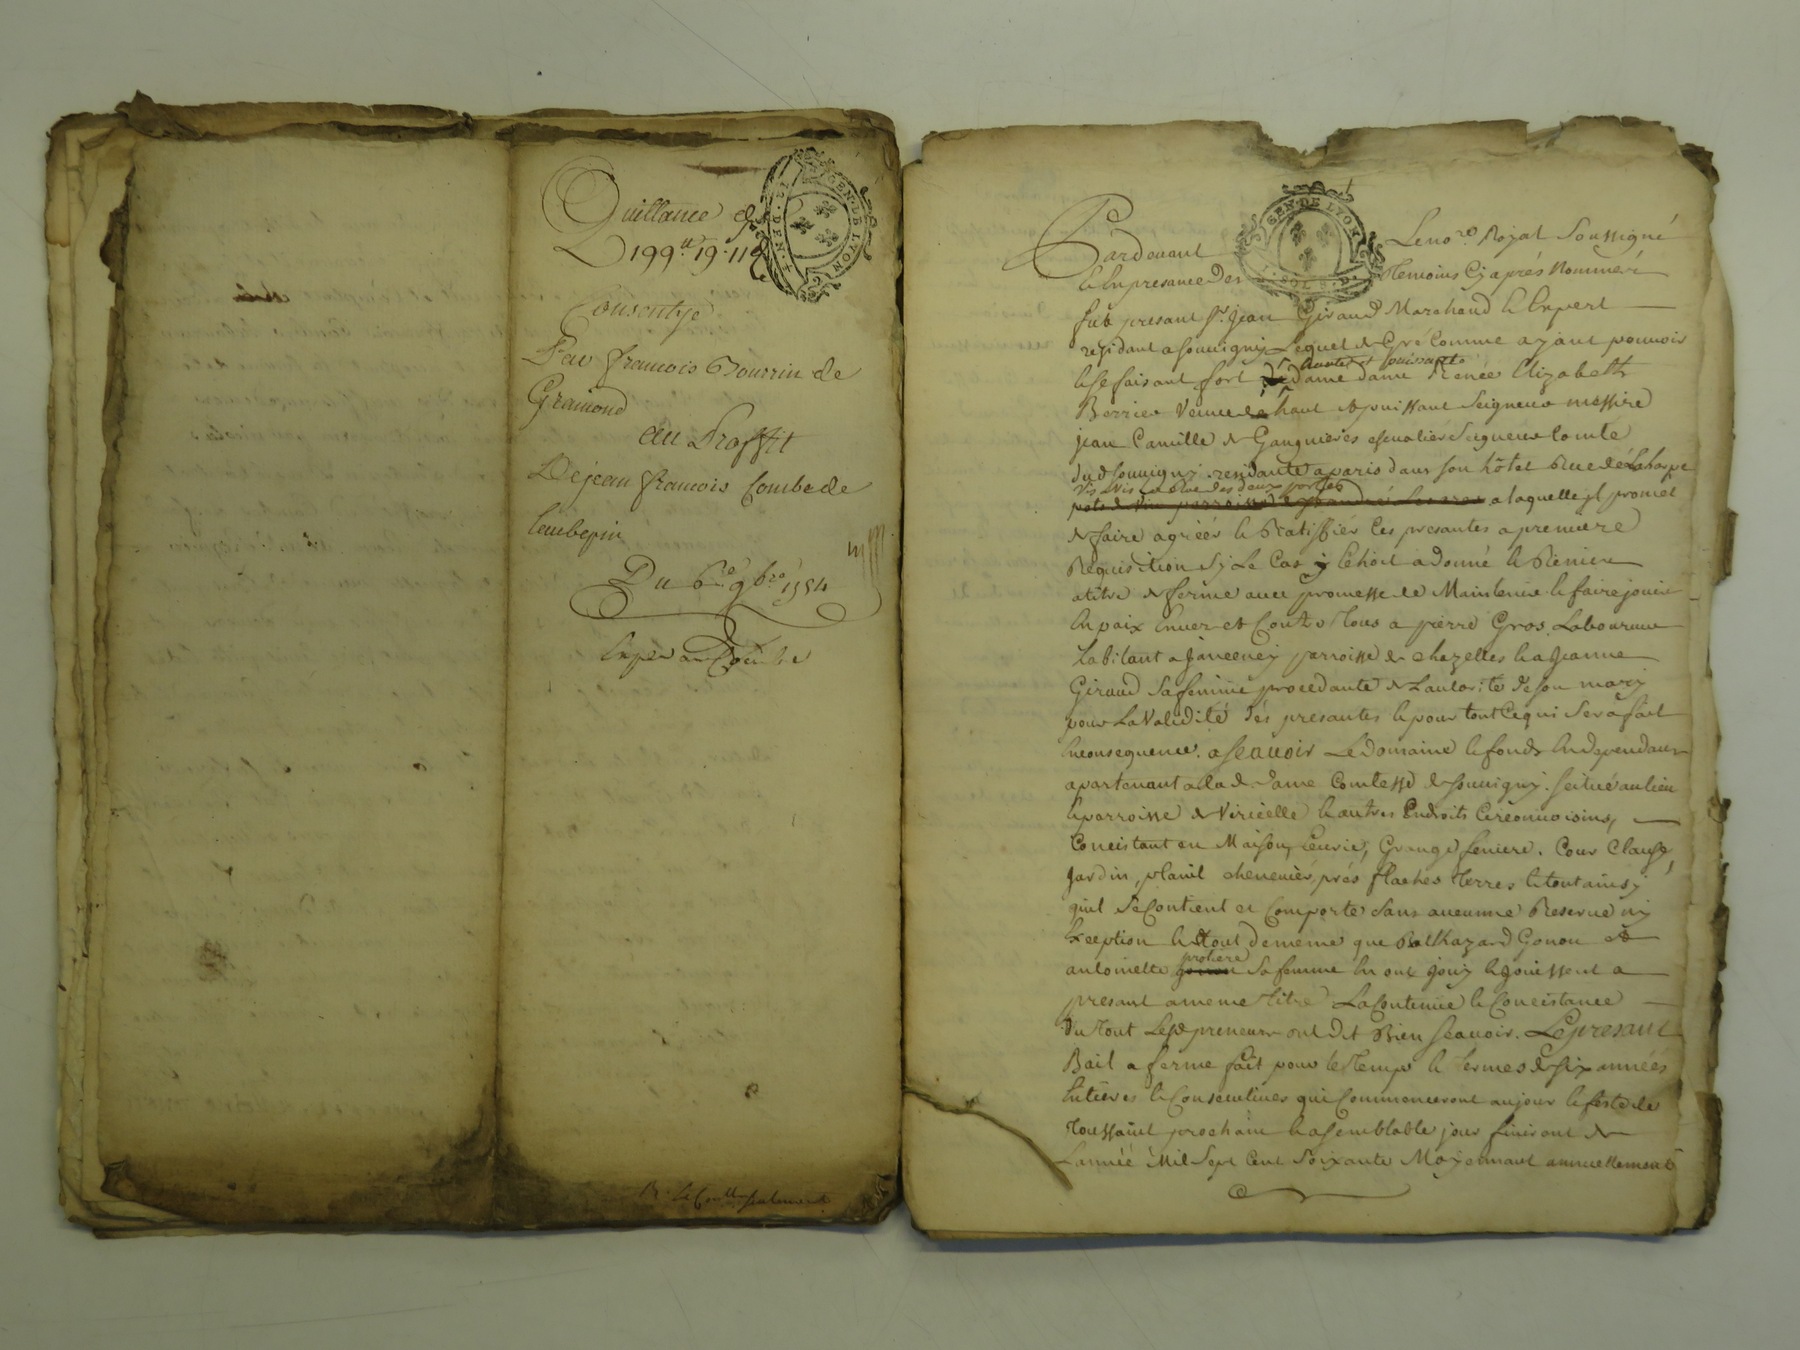 Quittance de
199ᵗᵗ 19ˢ 11ᵈ
GEN. DE LYON
Consentye
Par francois Bourrin de
Gramond
au Proffit
De jean francois Combe de
Laubepin
Du 6ᵉ 9bre 1754
GEN. DE LYON
Pardevant Le noʳᵉ Royal Soussigné
& En presance Des Temoins Cy aprés Nommés
fut presant Sʳ Jean Giraud Marchand & Expert
residant a Souvigny Lequel de Gré Comme ayant pouvoir
& se faisant fort de haute et puissante dame dame Renée Elizabeth
Berrier Veuve de haut & puissant Seigneur messire
jean Camille de Gangnieres chevalier Seigneur Comte
dud Souvigny. residante a paris dans son hôtel Rue de Laharpe
vis avis La Rue des deux portes a laquelle jl promet
de faire agréér & Ratiffier Ces presantes a premiere
Requisition Sy Le Cas y Echoit a donné & Remis
atitre de ferme avec promesse de Maintenir & faire jouir
En paix Envers et Contre Tous a pierre Gros Laboureur
habitant a parroisse de chazelles & a Jeanne
Giraud Sa femme procedante de Lautorité de Son mary
pour La Validité dés presantes & pour tout Cequi Sera fait
En consequence. a Scavoir Le domaine & fonds En dependants
apartenant a lad Dame Comtesse de Souvigny. Scitué au lieu
& parroisse de Viricelle & autres Endroits Circonvoisins,
Concistant en Maison, Ecurie, Grange feniere. Cour Clause,
Jardin, chenevier, prés flaches Terres & tout ainsy
quil Se Contient et Comporte Sans aucunne Reserve ny
Exception & tout demême que Balthazard Gonon &
antoinette protiere Sa femme En ont jouy & jouissent a
presant a meme Titre La Contenue & Concistance
Du tout Lesd preneurs ont dit Bien Scavoir. Le presant
Bail a ferme fait pour le Temps & Termes de Six années
Entieres & Consecutives qui Commenceront au jour & feste de
Toussaint prochain & a Semblable jour finiront de
Lannée Mil Sept Cent Soixante Moyennant annuellement